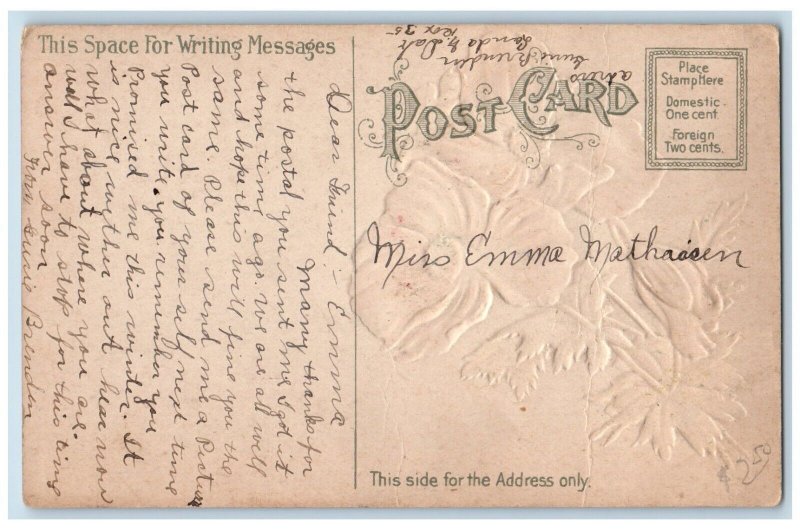 This Space For Writing Messages
POST CARD
Place
Stamp Here
Domestic
One cent
Foreign
Two cents.
Miss Emma Mathaisen
This side for the Address only.
Dear Friend:- Emma
Many thanks for
the postal you sent me, I got it
some time ago. We are all well
and hope this will fine you the
same. Please send me a Picture
Post card of your self next time
you write. you remember you
Promised me this winter. It
is nice wether out hear now
what about where you are.
well I have to stop for this time
answer soon
from
Brenden
Box 35